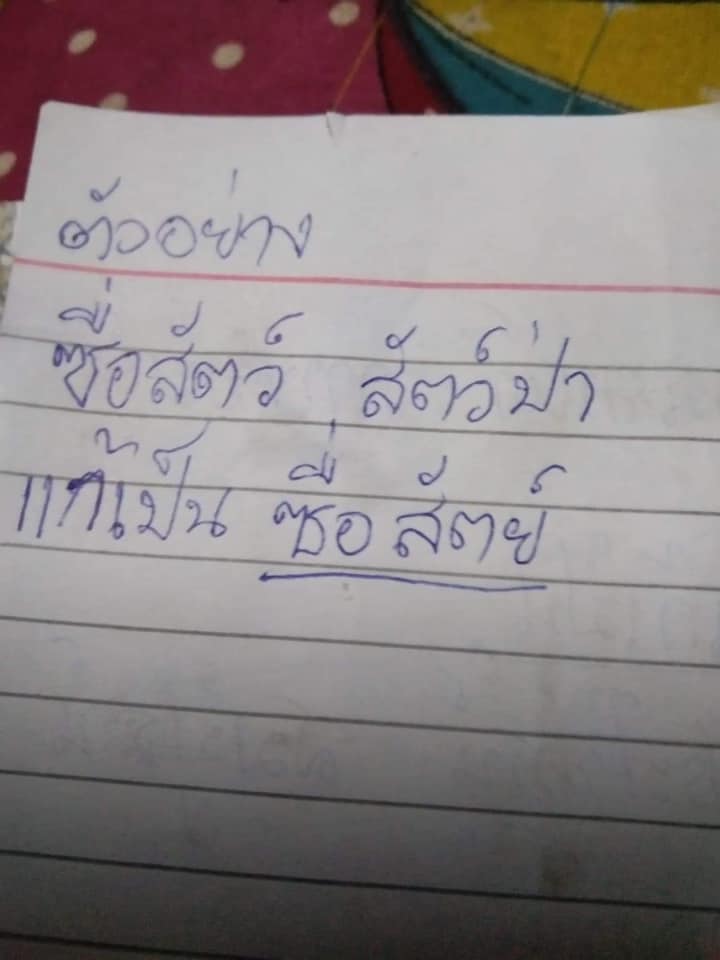 ตัวอย่าง
ซื่อสัตว์ สัตว์ป่า
แก้เป็น ซื่อสัตย์